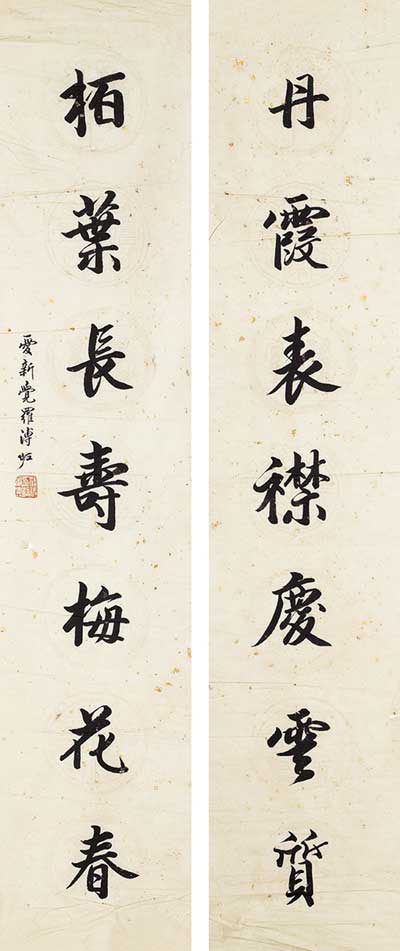 丹霞表襟慶雲質
栢葉長壽梅花春
愛新覺羅溥